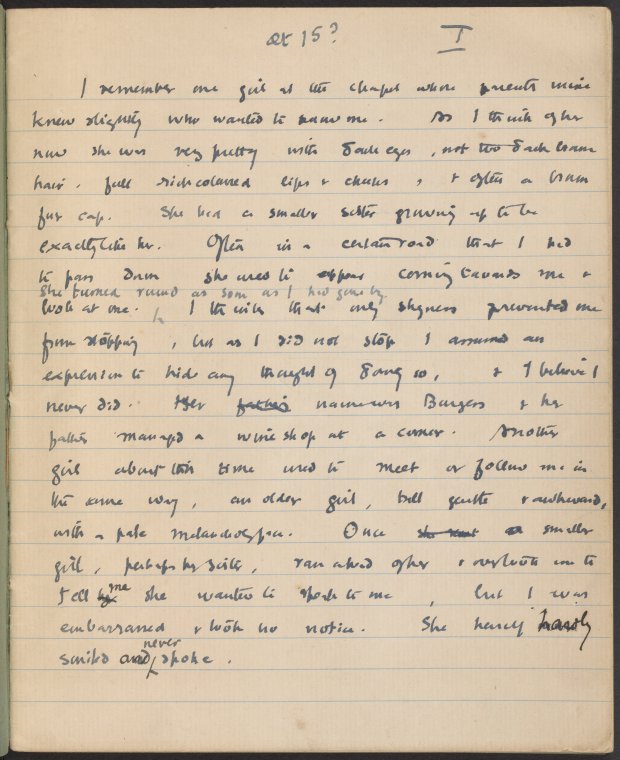 aet 15? I
I remember one girl at the chapel whose parents mine
knew slightly who wanted to know me. As I think of her
now she was very pretty with dark eyes, not too dark brown
hair, full rich coloured lips & cheeks, & often a brown
fur cap. She had a smaller sister growing up to be
exactly like her. Often in a certain road that I had
to pass down she used to appear coming towards me &
she turned round as soon as I had gone by
look at me. I think that only shyness prevented me
from stopping, but as I did not stop I assumed an
expression to hide any thought of doing so, & I believe I
never did. Her father name was Burgess & her
father managed a wine shop at a corner. Another
girl about this time used to meet or follow me in
the same way, an older girl, tall gentle & awkward,
with a pale melancholy face. Once she sent a smaller
girl, perhaps her sister, ran ahead of her & overtook me to
tell me she wanted to speak to me, but I was
embarrassed & took no notice. She herself hardly
smiled and never spoke.